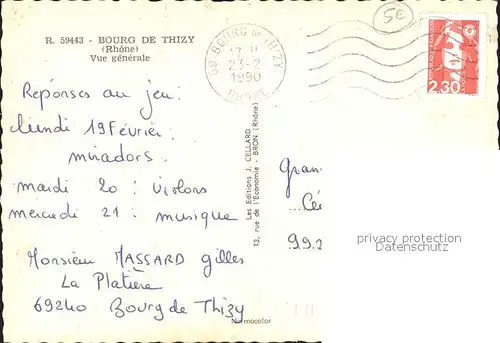 R. 59443 - BOURG DE THIZY
(Rhône)
Vue générale
69 BOURG DE THIZY
17 H
23-2
1990
RHONE
5€
2,30
Réponses au jeu.
lundi 19 Février:
miradors.
mardi 20 : violons
mercredi 21 : musique
Monsieur MASSARD gilles
La Platière
69240 Bourg de Thizy
Les Editions J. CELLARD
13, rue de l'Economie - BRON (Rhône)
Normocolor
Gran
Cé
99.2
privacy protection
Datenschutz